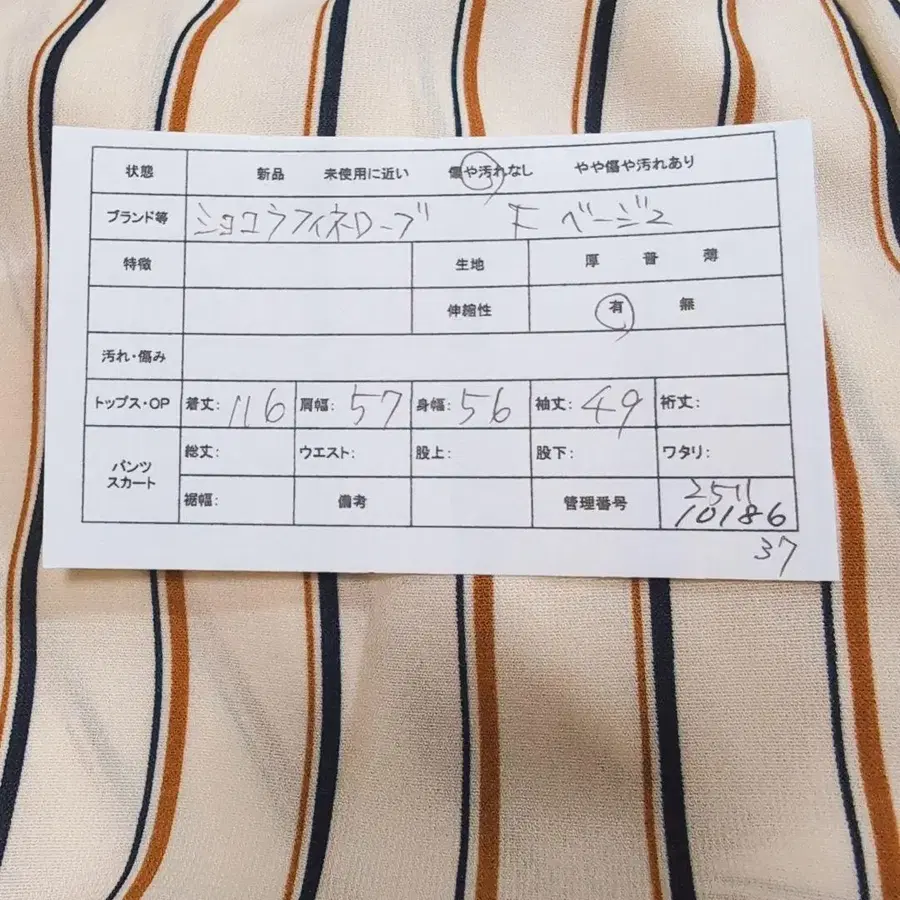 状態 新品 未使用に近い 傷や汚れなし やや傷や汚れあり
ブランド等 ショコラフィネローブ F ベージュ
特徴 生地 厚 普 薄
伸縮性 有 無
汚れ・傷み
トップス・OP 着丈: 116 肩幅: 57 身幅: 56 袖丈: 49 裄丈:
パンツ スカート 総丈: ウエスト: 股上: 股下: ワタリ:
裾幅: 備考 管理番号 2511
10186
37